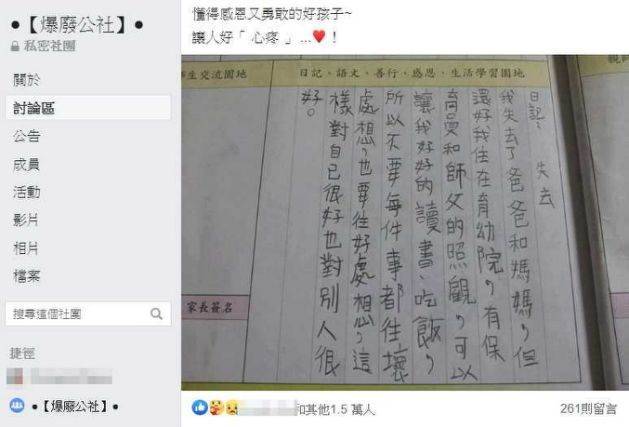 •【爆廢公社】•
私密社團
關於
討論區
公告
成員
活動
影片
相片
檔案
搜尋這個社團
捷徑
•【爆廢公社】•
懂得感恩又勇敢的好孩子~
讓人好「 心疼 」...❤!
生交流園地
日記、語文、善行、感恩、生活學習園地
親師
日記：失去
我失去了爸爸和媽媽，但
還好我住在育幼院，有保
育員和師父的照觀，可以
讓我好好的讀書、吃飯，
所以不要每件事都往壞
處想，也要往好處想，這
樣對自已很好也對別人很
好。
家長簽名
和其他1.5 萬人
261則留言